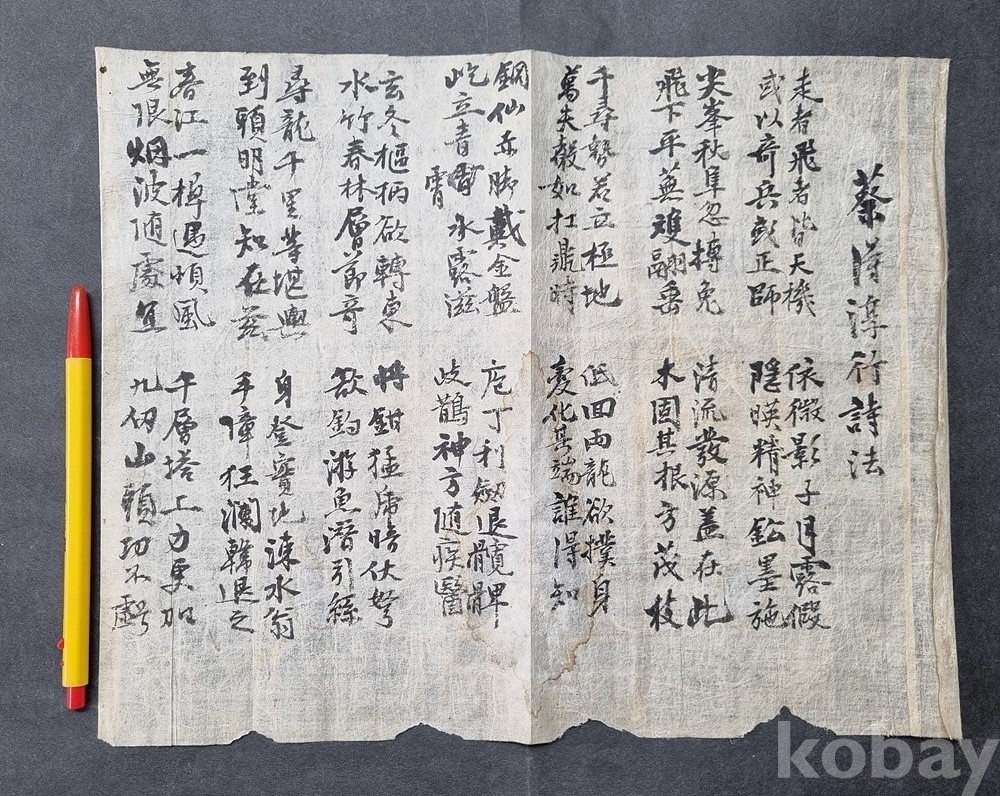 蔡得淳行詩法
走者飛者皆天機
或以奇兵或正師
依微影子月露假
隱暎精神鉛墨施
尖峯秋隼忽搏兔
飛下平蕪雙翮垂
清流發源盖在此
木固其根方茂枝
千尋勢若立極地
萬夫彀如扛鼎時
低回兩龍欲撲身
變化其端誰得知
銅仙赤脚戴金盤
屹立青霄承露滋
霄
庖丁利劒退髖髀
歧鵲神方随疾醫
玄冬樞柄欲轉東
水竹春林層節奇
將鉗猛虎暗伏弩
欲釣游魚潛引絲
尋龍千里等堪輿
到頭明堂知在玆
身登寶地涑水翁
手障狂瀾韓退之
春江一棹遇順風
無限烟波随處宜
千層塔上力更加
九仞山頭功不虧
kobay